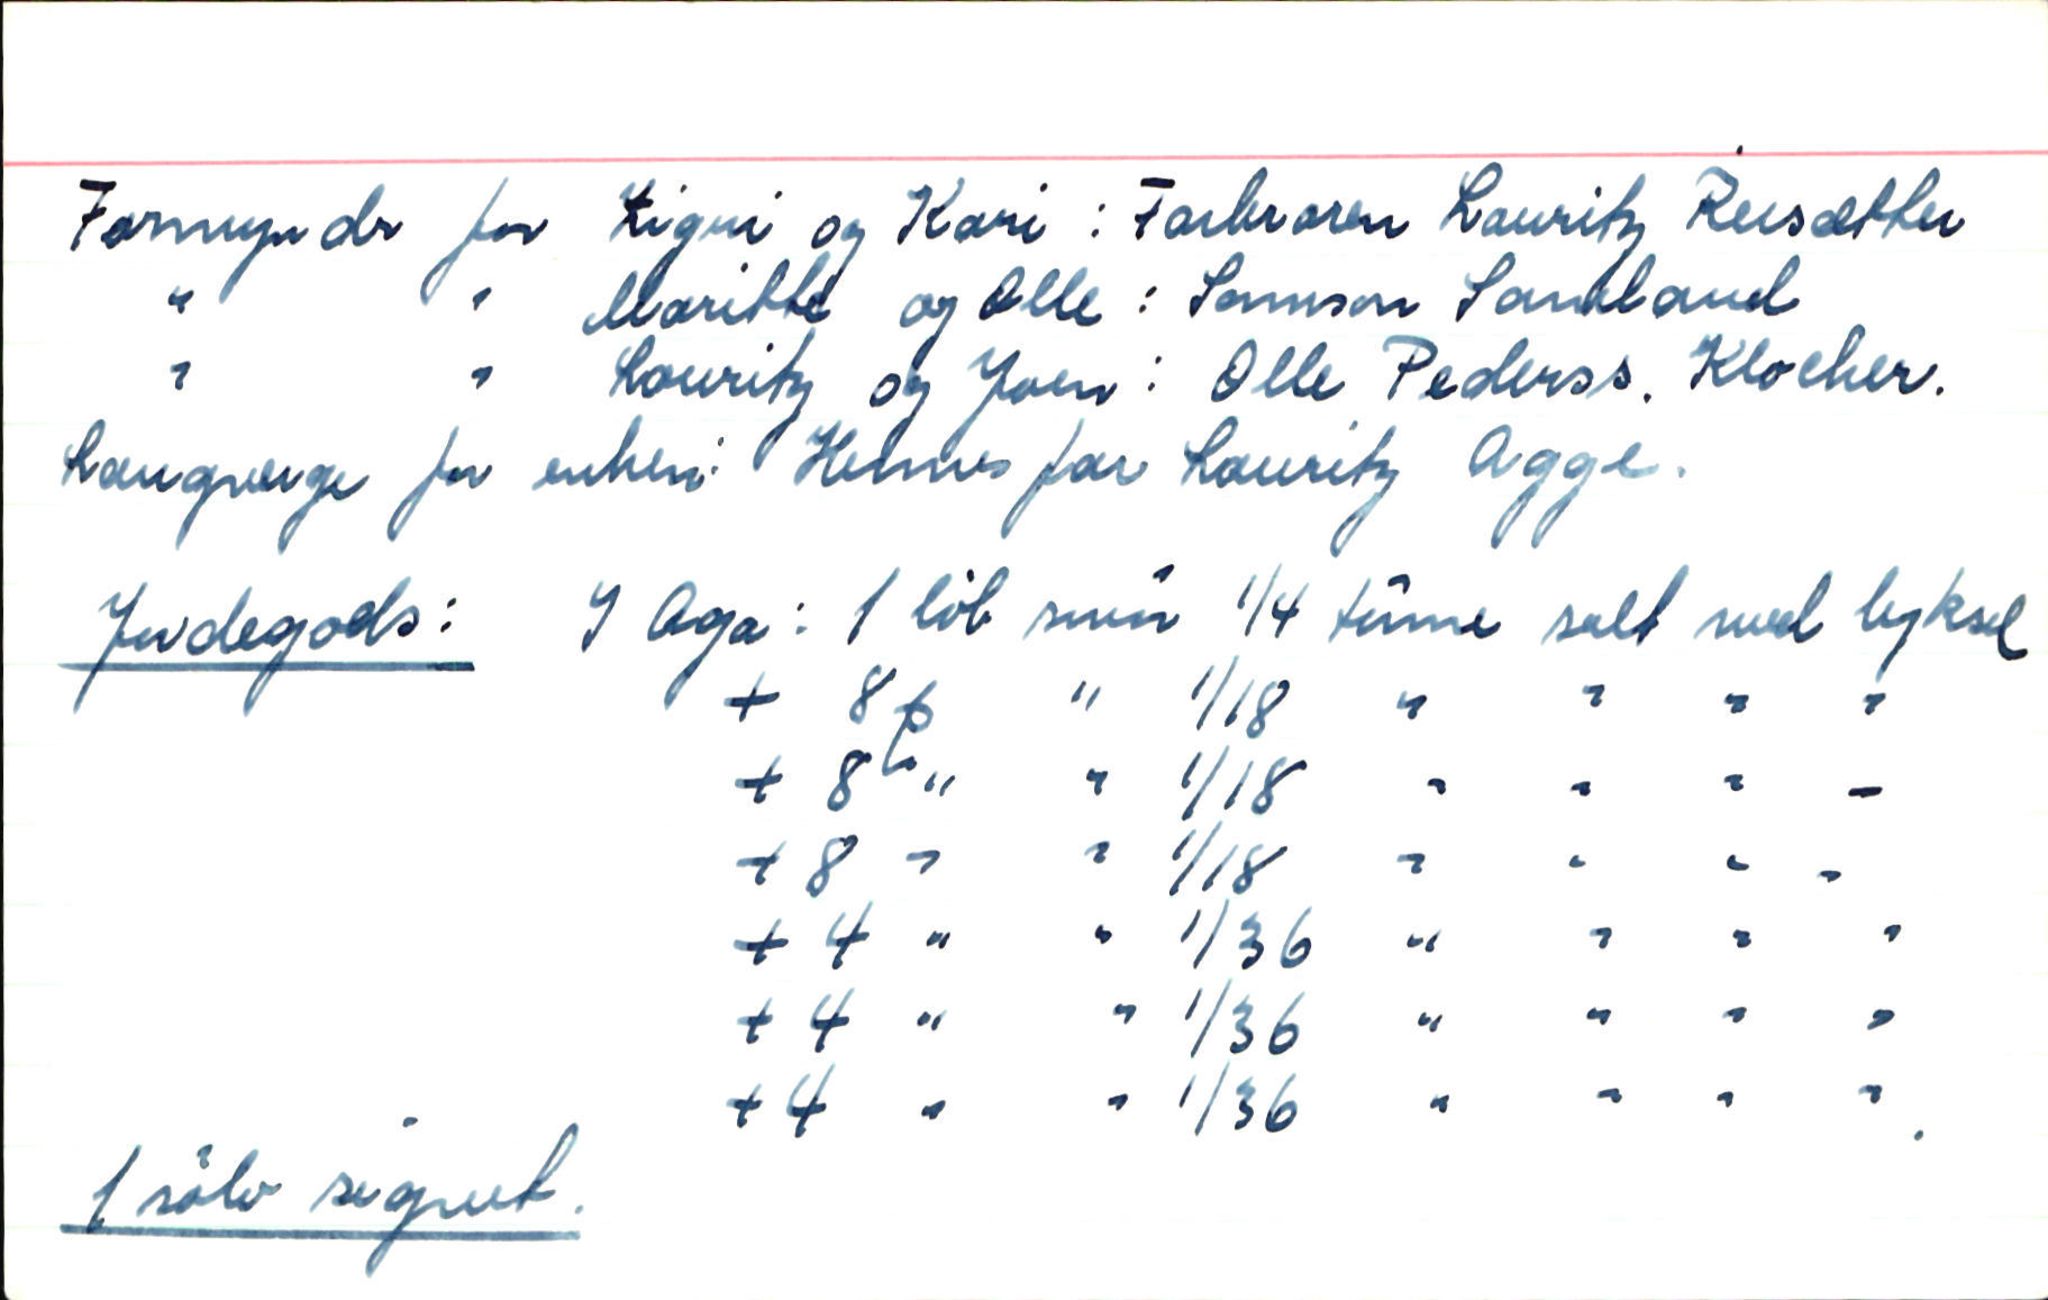 Formyndr for Zigni og Kari : Farbroren Lauritz Reisætter
" " Maritte og Olle : Samson Sandland
" " Lauritz og Joen : Olle Pederss. Klocher.
Laugverge for enken : Hennes far Lauritz Agge.
Jordegods : I Aga : 1 löb smör 1/4 tünne salt med byksel
+ 8 p " 1/18 " " " "
+ 8 " " 1/18 " " " -
+ 8 " " 1/18 " " " "
+ 4 " " 1/36 " " " "
+ 4 " " 1/36 " " " "
+ 4 " " 1/36 " " " ".
1 sölv signet.